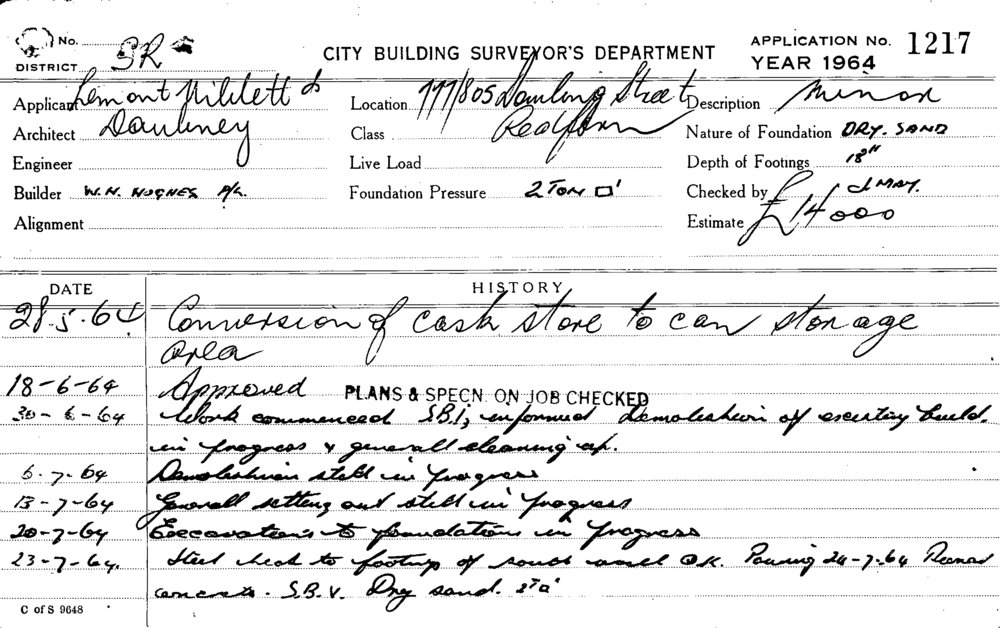 No. SR
DISTRICT
CITY BUILDING SURVEYOR'S DEPARTMENT
APPLICATION No. 1217
YEAR 1964
Applicant
Architect
Engineer
Builder W. N. HUGHES P/L.
Alignment
Location 777/805 Dowling Street
Class Redfern
Live Load
Foundation Pressure 2 TON □'
Description Minor
Nature of Foundation DRY. SAND
Depth of Footings 18"
Checked by J MAY.
Estimate £14000
DATE HISTORY
28.5.64 Conversion of cask store to can storage
area
18-6-64 Approved PLANS & SPECN. ON JOB CHECKED
30-6-64 Work commenced S.B.I, informed Demoleshion of excisting build.
in progress & generall cleaning up.
6-7-64 Demoleshion still in progress
13-7-64 Generall setting out still in progress
20-7-64 Exccavations to foundations in progress
23-7-64. Steel to footings of south wall O.K. Pouring 24-7-64
concrete. S.B.V. Dry sand.
C of S 9648